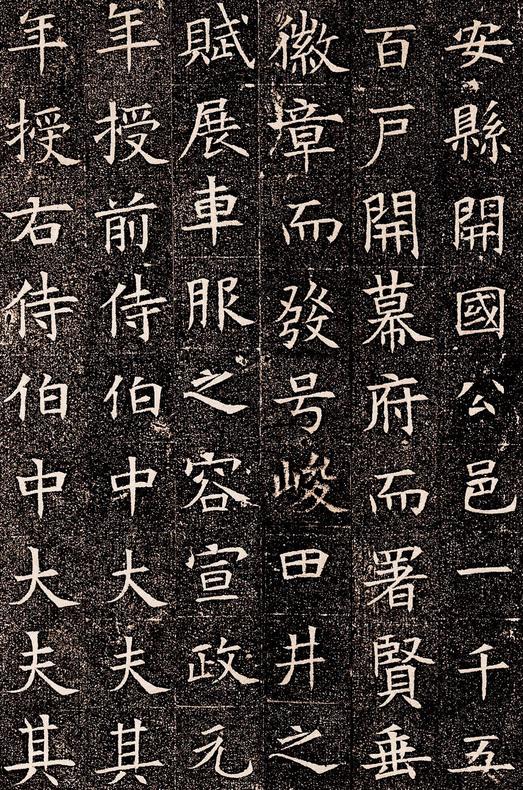 安縣開國公邑一千五
百戶開幕府而署賢垂
徽章而發号峻田井之
賦展車服之容宣政元
年授前侍伯中大夫其
年授右侍伯中大夫其